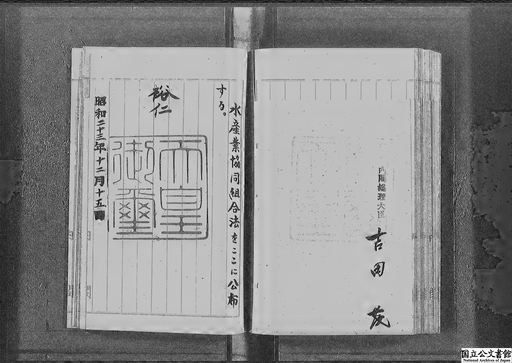 水産業協同組合法をここに公布
する。
裕仁
天皇御璽
昭和二十三年十二月十五日
内閣総理大臣
吉田茂
国立公文書館
National Archives of Japan